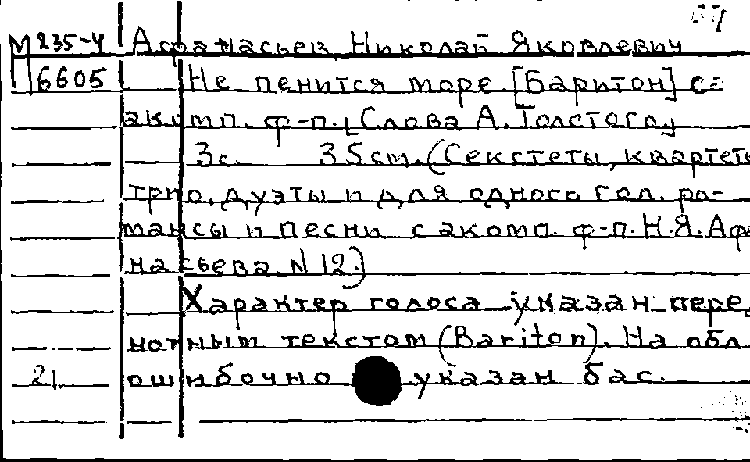 М 235-4 Афанасьев, Николай Яковлевич
6605 Не пенится море. [Баритон] с
акомп. ф-п. [Слова А. Толстого]
3с. 35cm. (Секстеты, квартеты
трио, дуэты и для одного гол. ро-
мансы и песни с акомп. ф-п. Н.Я. Афа
насьева N 12.)
Характер голоса указан перед
нотным текстом (Bariton). На обл.
21 ошибочно указан бас.